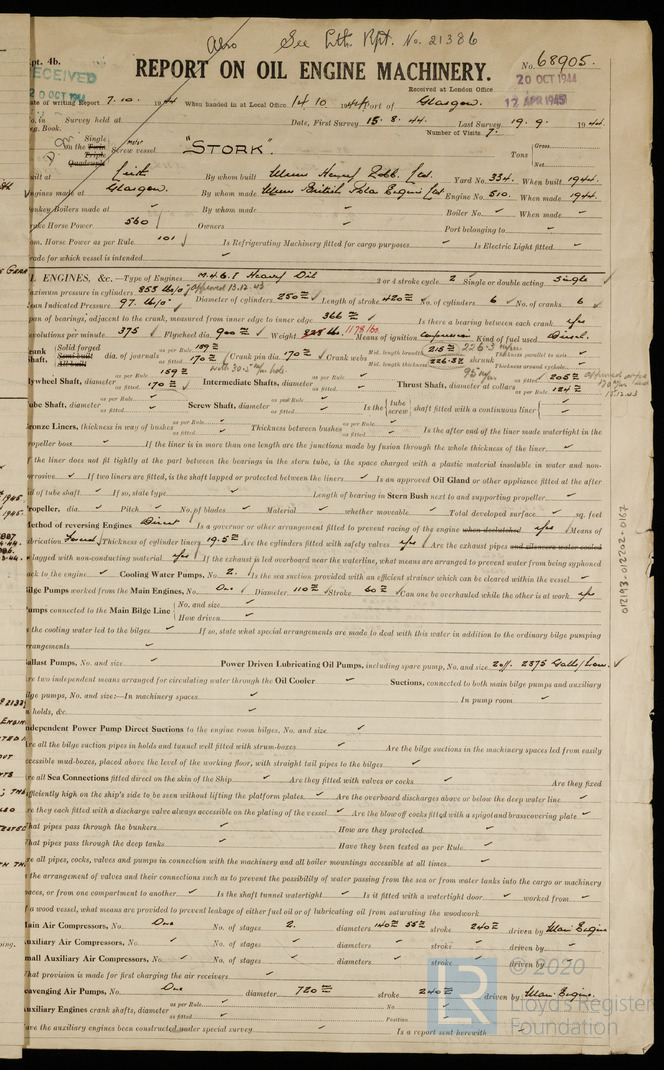 Also See Lth. Rpt. No. 21386
pt. 4b.
No. 68905.
REPORT ON OIL ENGINE MACHINERY.
RECEIVED
20 OCT 1944
Received at London Office
20 OCT 1944
12 APR 1945
ate of writing Report 7.10. 1944 When handed in at Local Office 14.10 1944 Port of Glasgow.
o. in Survey held at Date, First Survey 15.8.44. Last Survey 19.9. 1944.
eg. Book. Number of Visits 7.
on the Single Twin Triple Quadruple Screw vessel "STORK". Tons Gross Net
uilt at Leith By whom built Messrs Henry Robb Ltd. Yard No. 334. When built 1944.
ngines made at Glasgow. By whom made Messrs British Polar Engines Ltd Engine No. 510. When made 1944.
onkey Boilers made at By whom made Boiler No. When made
rake Horse Power 560 Owners Port belonging to
om. Horse Power as per Rule 101 Is Refrigerating Machinery fitted for cargo purposes Is Electric Light fitted
rade for which vessel is intended
L ENGINES, &c.—Type of Engines M.46.I Heavy Oil 2 or 4 stroke cycle 2 Single or double acting Single
aximum pressure in cylinders 855 lbs/□" approved 13.12.43 Diameter of cylinders 250 Length of stroke 420 No. of cylinders 6 No. of cranks 6
ean Indicated Pressure 97 lbs/□"
pan of bearings, adjacent to the crank, measured from inner edge to inner edge 366 Is there a bearing between each crank yes
evolutions per minute 375 Flywheel dia. 900 Weight 1178 lbs. Means of ignition compression Kind of fuel used Diesel.
rank haft, Solid forged Semi built All built dia. of journals as per Rule 159 as fitted 170 Crank pin dia. 170 Crank webs Mid. length breadth 215 226.3 Mid. length thickness shrunk Thickness parallel to axis Thickness around eyehole
lywheel Shaft, diameter as per Rule 159 as fitted 170 Intermediate Shafts, diameter as per Rule as fitted Thrust Shaft, diameter at collars as fitted 205 as per Rule 124
ube Shaft, diameter as per Rule as fitted Screw Shaft, diameter as per Rule as fitted Is the tube screw shaft fitted with a continuous liner
ronze Liners, thickness in way of bushes as per Rule as fitted Thickness between bushes as per Rule as fitted Is the after end of the liner made watertight in the
ropeller boss If the liner is in more than one length are the junctions made by fusion through the whole thickness of the liner
f the liner does not fit tightly at the part between the bearings in the stern tube, is the space charged with a plastic material insoluble in water and non-
orrosive If two liners are fitted, is the shaft lapped or protected between the liners Is an approved Oil Gland or other appliance fitted at the after
nd of tube shaft If so, state type Length of bearing in Stern Bush next to and supporting propeller
ropeller, dia. Pitch No. of blades Material whether moveable Total developed surface sq. feet
ethod of reversing Engines Direct Is a governor or other arrangement fitted to prevent racing of the engine when declutched yes Means of
ubrication Forced Thickness of cylinder liners 19.5 Are the cylinders fitted with safety valves yes Are the exhaust pipes and silencers water cooled
r lagged with non-conducting material yes If the exhaust is led overboard near the waterline, what means are arranged to prevent water from being syphoned
ack to the engine Cooling Water Pumps, No. 2. Is the sea suction provided with an efficient strainer which can be cleared within the vessel
ilge Pumps worked from the Main Engines, No. One Diameter 110 Stroke 60 Can one be overhauled while the other is at work yes
umps connected to the Main Bilge Line No. and size How driven
s the cooling water led to the bilges If so, state what special arrangements are made to deal with this water in addition to the ordinary bilge pumping
rrangements
allast Pumps, No. and size Power Driven Lubricating Oil Pumps, including spare pump, No. and size 2 off. 2375 Galls/hour.
re two independent means arranged for circulating water through the Oil Cooler Suctions, connected to both main bilge pumps and auxiliary
ilge pumps, No. and size:—In machinery spaces In pump room
n holds, &c.
ndependent Power Pump Direct Suctions to the engine room bilges, No. and size
re all the bilge suction pipes in holds and tunnel well fitted with strum-boxes Are the bilge suctions in the machinery spaces led from easily
ccessible mud-boxes, placed above the level of the working floor, with straight tail pipes to the bilges
re all Sea Connections fitted direct on the skin of the Ship Are they fitted with valves or cocks Are they fixed
ufficiently high on the ship's side to be seen without lifting the platform plates Are the overboard discharges above or below the deep water line
re they each fitted with a discharge valve always accessible on the plating of the vessel Are the blow off cocks fitted with a spigot and brass covering plate
hat pipes pass through the bunkers How are they protected
hat pipes pass through the deep tanks Have they been tested as per Rule
re all pipes, cocks, valves and pumps in connection with the machinery and all boiler mountings accessible at all times
the arrangement of valves and their connections such as to prevent the possibility of water passing from the sea or from water tanks into the cargo or machinery
paces, or from one compartment to another Is the shaft tunnel watertight Is it fitted with a watertight door worked from
f a wood vessel, what means are provided to prevent leakage of either fuel oil or of lubricating oil from saturating the woodwork
ain Air Compressors, No. One No. of stages 2. diameters 140 55 stroke 240 driven by Main Engine
uxiliary Air Compressors, No. No. of stages diameters stroke driven by
mall Auxiliary Air Compressors, No. No. of stages diameters stroke driven by
hat provision is made for first charging the air receivers
cavenging Air Pumps, No. One diameter 720 stroke 240 driven by Main Engine.
uxiliary Engines crank shafts, diameter as per Rule as fitted No. Position
ave the auxiliary engines been constructed under special survey Is a report sent herewith
012193-012202-0167
LR
© 2020
Lloyd's Register
Foundation